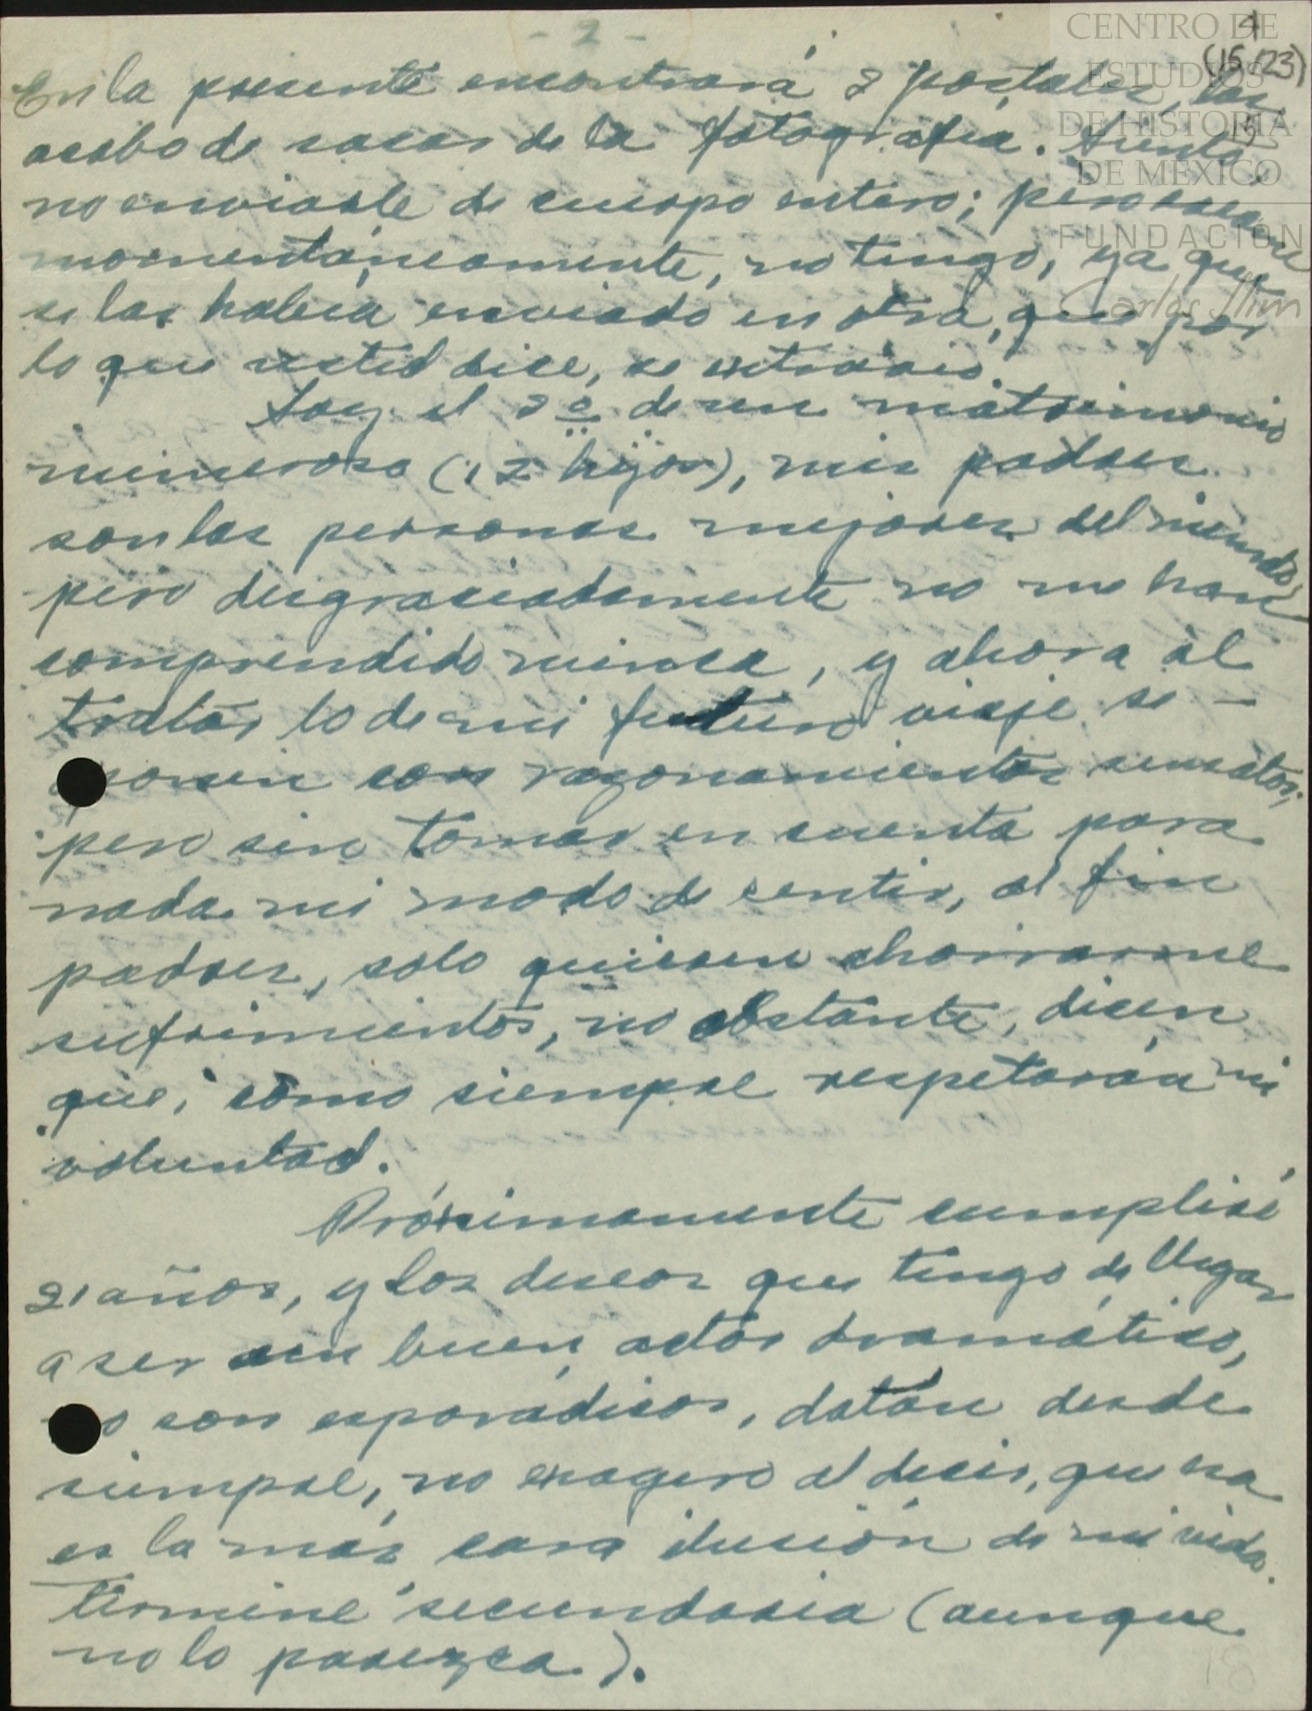 - 2 -
4
(15/23)
15
En la presente encontrará 2 postales, las
acabo de sacar de la fotografía. Siento
no enviarle de cuerpo entero; pero
momentáneamente, no tengo, ya que
se las había enviado en otra, que por
lo que usted dice, se extravió.
Soy el 2º de un matrimonio
numeroso (12 hijos), mis padres
son las personas mejores del mundo
pero desgraciadamente no me han
comprendido nunca, y ahora al
tratar lo de mi futuro viaje se -
oponen con razonamientos sensatos;
pero sin tomar en cuenta para
nada mi modo de sentir, al fin
padres, solo quieren ahorrarme
sufrimientos, no obstante, dicen
que, como siempre respetarán mi
voluntad.
Próximamente cumpliré
21 años, y los deseos que tengo de llegar
a ser un buen actor dramático,
no son esporádicos, datan desde
siempre, no exagero al decir, que esa
es la más cara ilusión de mi vida.
Terminé secundaria (aunque
no lo parezca).
18
CENTRO DE
ESTUDIOS
DE HISTORIA
DE MÉXICO
FUNDACIÓN
Carlos Slim